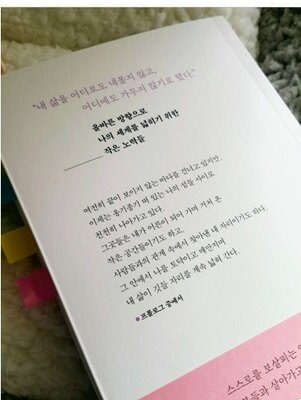 "내 삶을 어디로도 내몰지 않고,
어디에도 가두지 않기로 했다."
올바른 방향으로
나의 세계를 넓히기 위한
작은 노력들
여전히 끝이 보이지 않는 바다를 건너고 있지만,
이제는 옹기종기 떠 있는 나의 섬들 사이로
천천히 나아가고 있다.
그곳들은 내가 어른이 되어 가며 거쳐 온
작은 공간들이기도 하고,
사람들과의 관계 속에서 찾아낸 내 자리이기도 하다.
그 안에서 나를 토닥이고 매만지며
내 삶이 깃들 자리를 계속 넓혀 간다.
프롤로그 중에서
스스로를 보살피는
살아가고